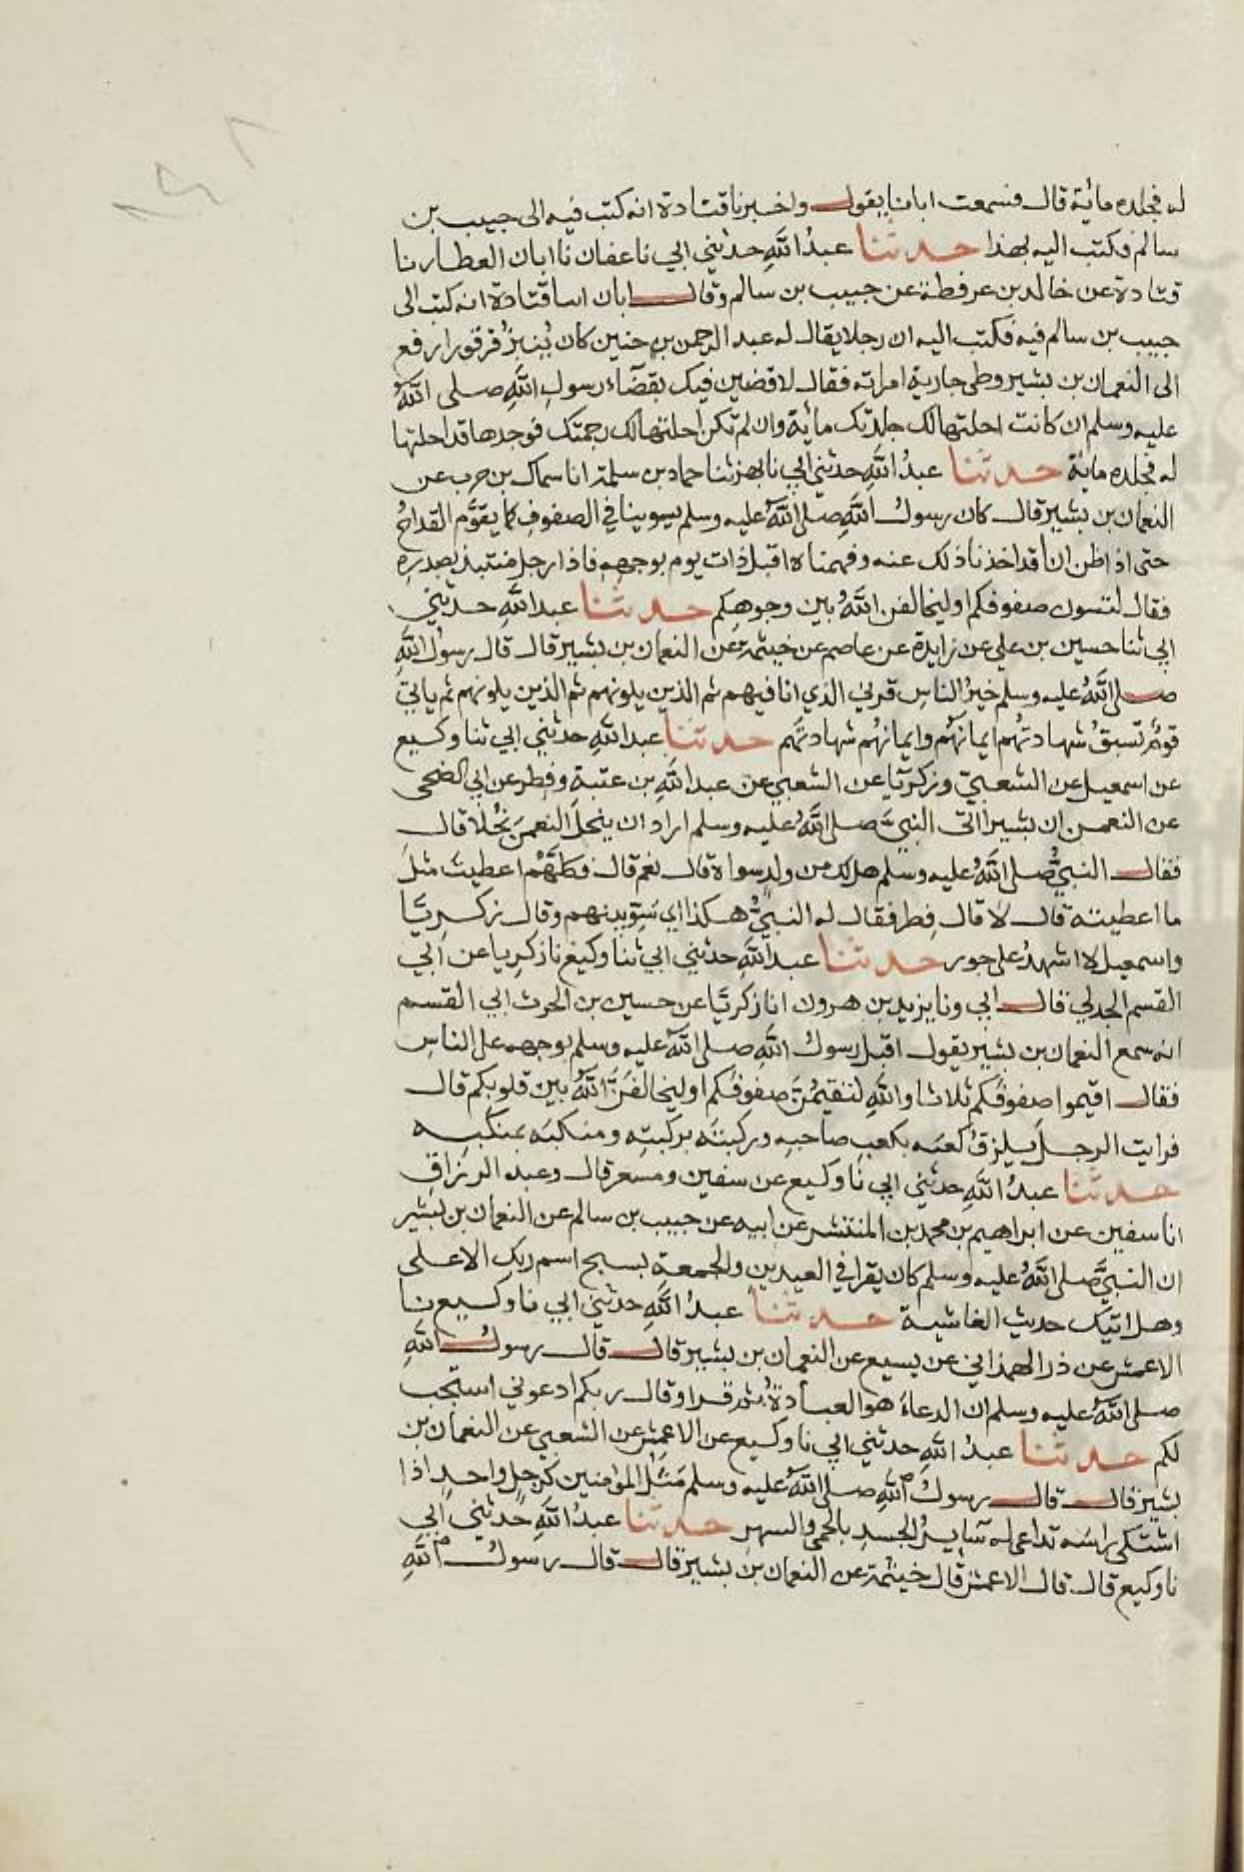 له فجلده مائة قال فسمعت ابانا يقول واخبرنا قتادة انه كتب فيه الى حبيب بن
سالم فكتب اليه بهذا حدثنا عبدُ اللَّهِ حدثني ابي نا عفان نا ابان العطار نا
قتادة عن خالد بن عرفطة عن حبيب بن سالم وقال ابان انبا قتادة انه كتب الى
حبيب بن سالم فيه فكتب اليه ان رجلا يقال له عبد الرحمن بن حنين كان يُنبزُ قرقورا رفع
الى النعمان بن بشير وطى جارية امراته فقال لاقضين فيك بقضآء رسولِ اللَّهِ صلى اللَّهُ
عليه وسلم ان كانت احلتها لك جلدتك مائة وان لم تكن احلتها لك رجمتك فوجدها قد احلتها
له فجلده مائة حدثنا عبدُ اللَّهِ حدثني ابي نا بهز ثنا حماد بن سلمة انا سماك بن حرب عن
النعمان بن بشير قال كان رسولُ اللَّهِ صلى اللَّهُ عليه وسلم يسوينا في الصفوفِ كما يقوَّم القداحُ
حتى اذا ظن ان قد اخذنا ذلك عنه وفهمناه اقبل ذات يوم بوجهه فاذا رجل منتبذ بصدرِه
فقال لتسون صفوفكم او ليخالفن اللَّهُ بين وجوهكم حدثنا عبد اللَّهِ حدثني
ابي ثنا حسين بن علي عن زايدة عن عاصم عن خيثمة عن النعمان بن بشير قال قال رسولُ اللَّهِ
صلى اللَّهُ عليه وسلم خيرُ الناسِ قرني الذي انا فيهم ثم الذين يلونهم ثم الذين يلونهم ثم ياتي
قومٌ تسبقُ شهادتُهم ايمانَهُم وايمانهُم شهادتَهم حدثنا عبد اللَّهِ حدثني ابي ثنا وكيع
عن اسمعيل عن الشعبيّ وزكريَّا عن الشعبي عن عبد اللَّهِ بن عتبة وفِطر عن ابي الضحى
عن النعمن ان بشيرا اتى النبيَّ صلى اللَّهُ عليه وسلم اراد ان ينحلَ النعمنَ نُحلا قال
فقال النبيُّ صلى اللَّهُ عليه وسلم هل لك من ولدٍ سواه قال نعم قال فكلَّهُم اعطيت مثلَ
ما اعطيته قال لا قال فِطر فقال له النبيُّ هكذا اي سَوِّ بينهم وقال زكريَّا
واسمعيل لا اشهدُ على جور حدثنا عبد اللَّهِ حدثني ابي ثنا وكيع نا زكريا عن ابي
القسم الجدلي قال ابي ونا يزيد بن هرون انا زكريَّا عن حسين بن الحرث ابي القسم
انه سمع النعمان بن بشير يقول اقبل رسولُ اللَّهِ صلى اللَّهُ عليه وسلم بوجهه على الناسِ
فقال اقيموا صفوفكم ثلاثا واللَّهِ لتقيمُنَّ صفوفَكم او ليخالفَنَّ اللَّهُ بين قلوبكم قال
فرايت الرجلَ يلزقُ كعبَه بكعبِ صاحبهِ وركبتَه بركبتِهِ ومنكبَه بمنكبِه
حدثنا عبدُ اللَّهِ حدثني ابي نا وكيع عن سفين ومسعر قال وعبد الرزاقِ
انا سفين عن ابراهيم بن محمد بن المنتشر عن ابيه عن حبيب بن سالم عن النعمان بن بشير
ان النبيَّ صلى اللَّهُ عليه وسلم كان يقرا في العيدين والجمعة بسبح اسم ربك الاعلى
وهل اتيك حديث الغاشية حدثنا عبدُ اللَّهِ حدثني ابي نا وكيع نا
الاعمش عن ذر الهمذاني عن يسيع عن النعمان بن بشير قال قال رسولُ اللَّهِ
صلى اللَّهُ عليه وسلم ان الدعاءَ هو العبادةُ ثم قرا وقال ربكم ادعوني استجب
لكم حدثنا عبدُ اللَّهِ حدثني ابي نا وكيع عن الاعمش عن الشعبي عن النعمان بن
بشير قال قال رسولُ اللَّهِ صلى اللَّهُ عليه وسلم مَثَلُ المؤمنين كرجلٍ واحدٍ اذا
اشتكى راسَه تداعى له سآيرُ الجسدِ بالحمى والسهر حدثنا عبدُ اللَّهِ حدثني ابي
نا وكيع قال قال الاعمش قال خيثمة عن النعمان بن بشير قال قال رسولُ اللَّهِ